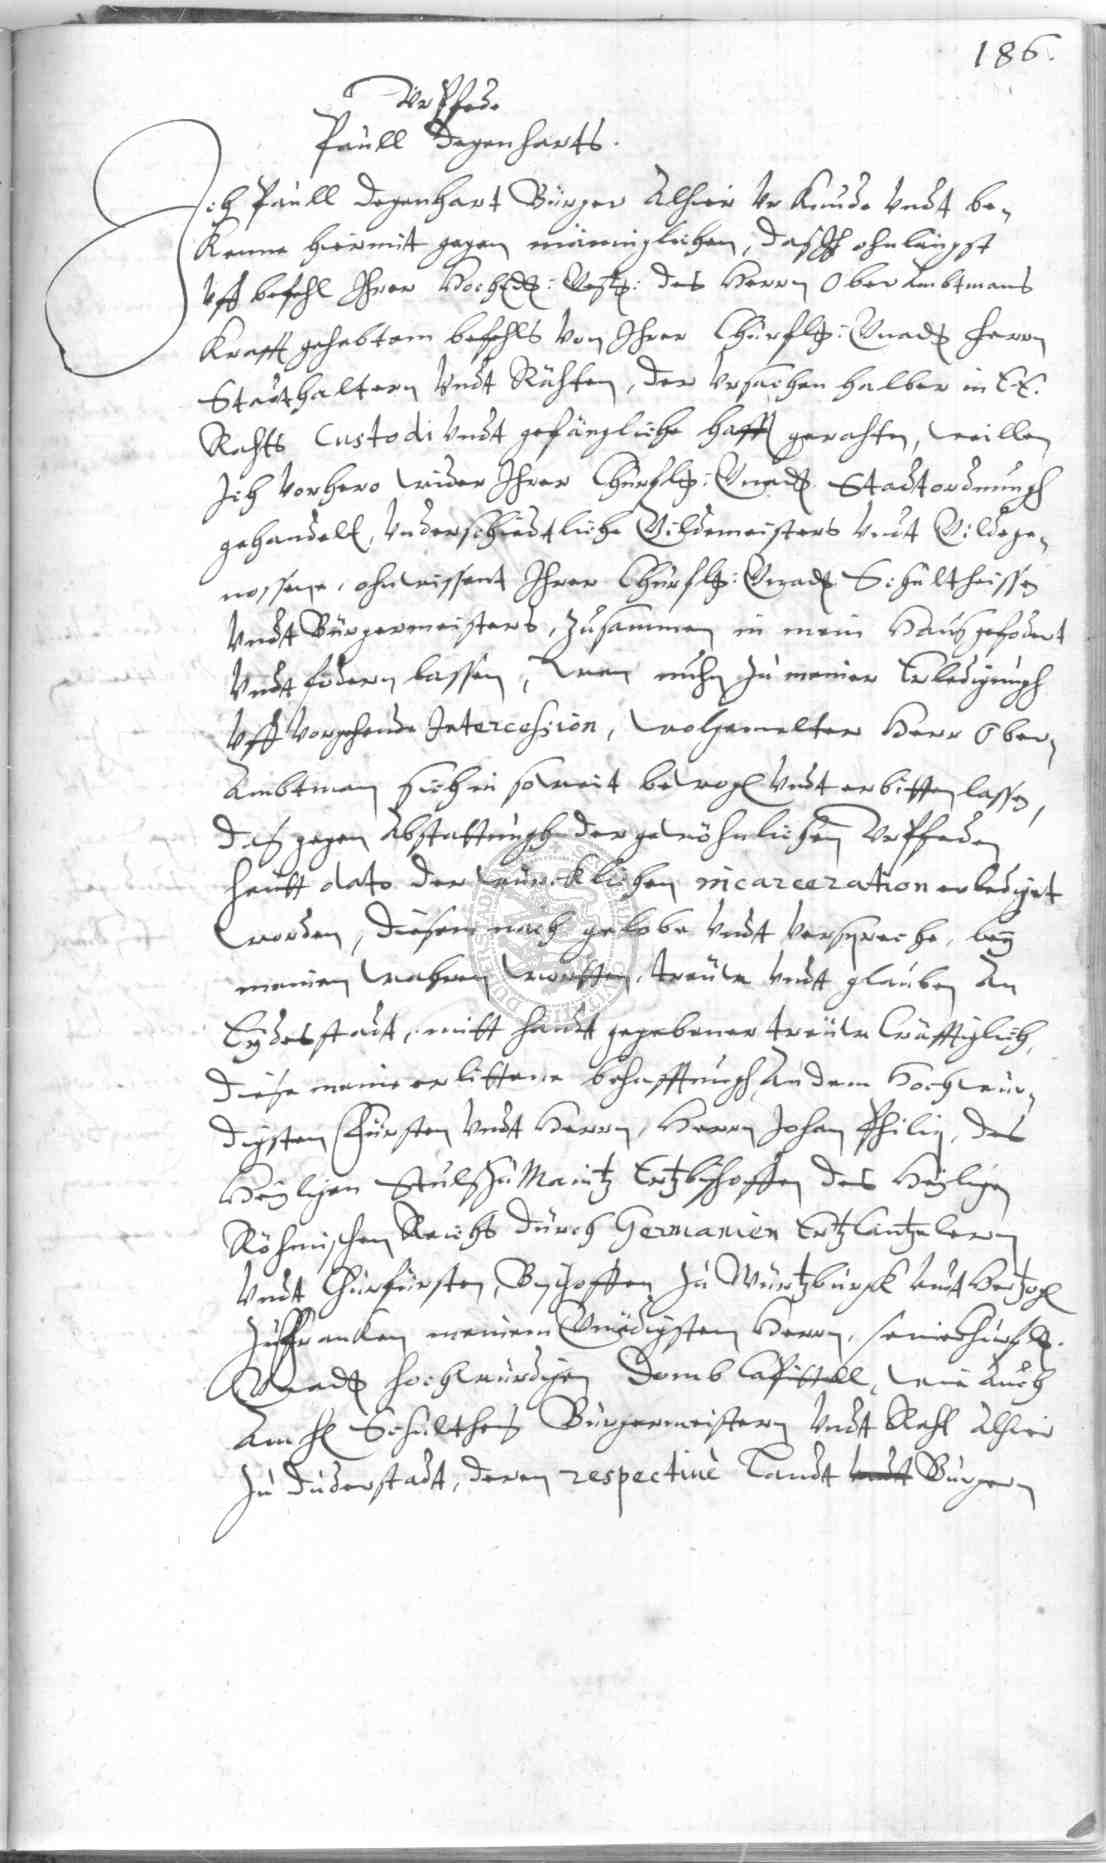 186.
Urpfede
Paull Degenharts.
Ich Paull Degenhart Bürger Alhier Urkunde Undt be-
kenne hiermit gegen männiglichen, daß Ich ohnlängst
Uff befehl Ihrer Hoch des Herrn Ober Ambtmans
Krafft gehabtem befehls Von Ihrer Churflg: Gnad Herrn
Stadthaltern Undt Rähten, der Ursachen halber in EE.
Rahts Custodi Undt gefängliche hafft gerahten, weillen
Ich Vorhero wider Ihrer Churflg: Gnad Stadtordnungh
gehandelt, Underschiedtliche Gildemeisters Undt Gildege-
nossene, ohnwissent Ihrer Churflg: Gnad Schultheissen
Undt Bürgermeisters, Zusammen in mein Hauß gefodert
Undt fodern lassen, Wan nuhn Zu meiner Erledigungh
Uff Vorgehende Intercession, wolgemelter Herr Ober-
Ambtman sich in so weit bewogen Undt erbitten lassen,
daß gegen Abstattungh der gewöhnlichen Urpfeden
heutt dato der würcklichen incarceration erledigt
worden, Diesem nach gelobe Undt Verspreche, bey
meinen wahren wortten, treuw Undt glauben An
Eydesstadt, mitt handt gegebener treuw kräfftiglich,
diese meine erlittene behafftungh, An dem Hochwür-
digsten Fürsten Undt Herrn, Herrn Johan Philip, des
Heyligen Stuls Zu Maintz Ertzbischoffen des Heyligen
Röhmischen Reichs durch Germanien Ertzcantzelern
Undt Churfürsten, Bischoffen Zu Würtzburck Undt Hertzogen
Zu Francken meinem Gnädigsten Herrn, seiner Churflg.
Gnad hochwürdigen Domb Capittell, wie Auch
Schulthes Bürgermeistern Undt Raht Alhier
Zu Duderstadt, deren respectivè Landt Undt Bürgern